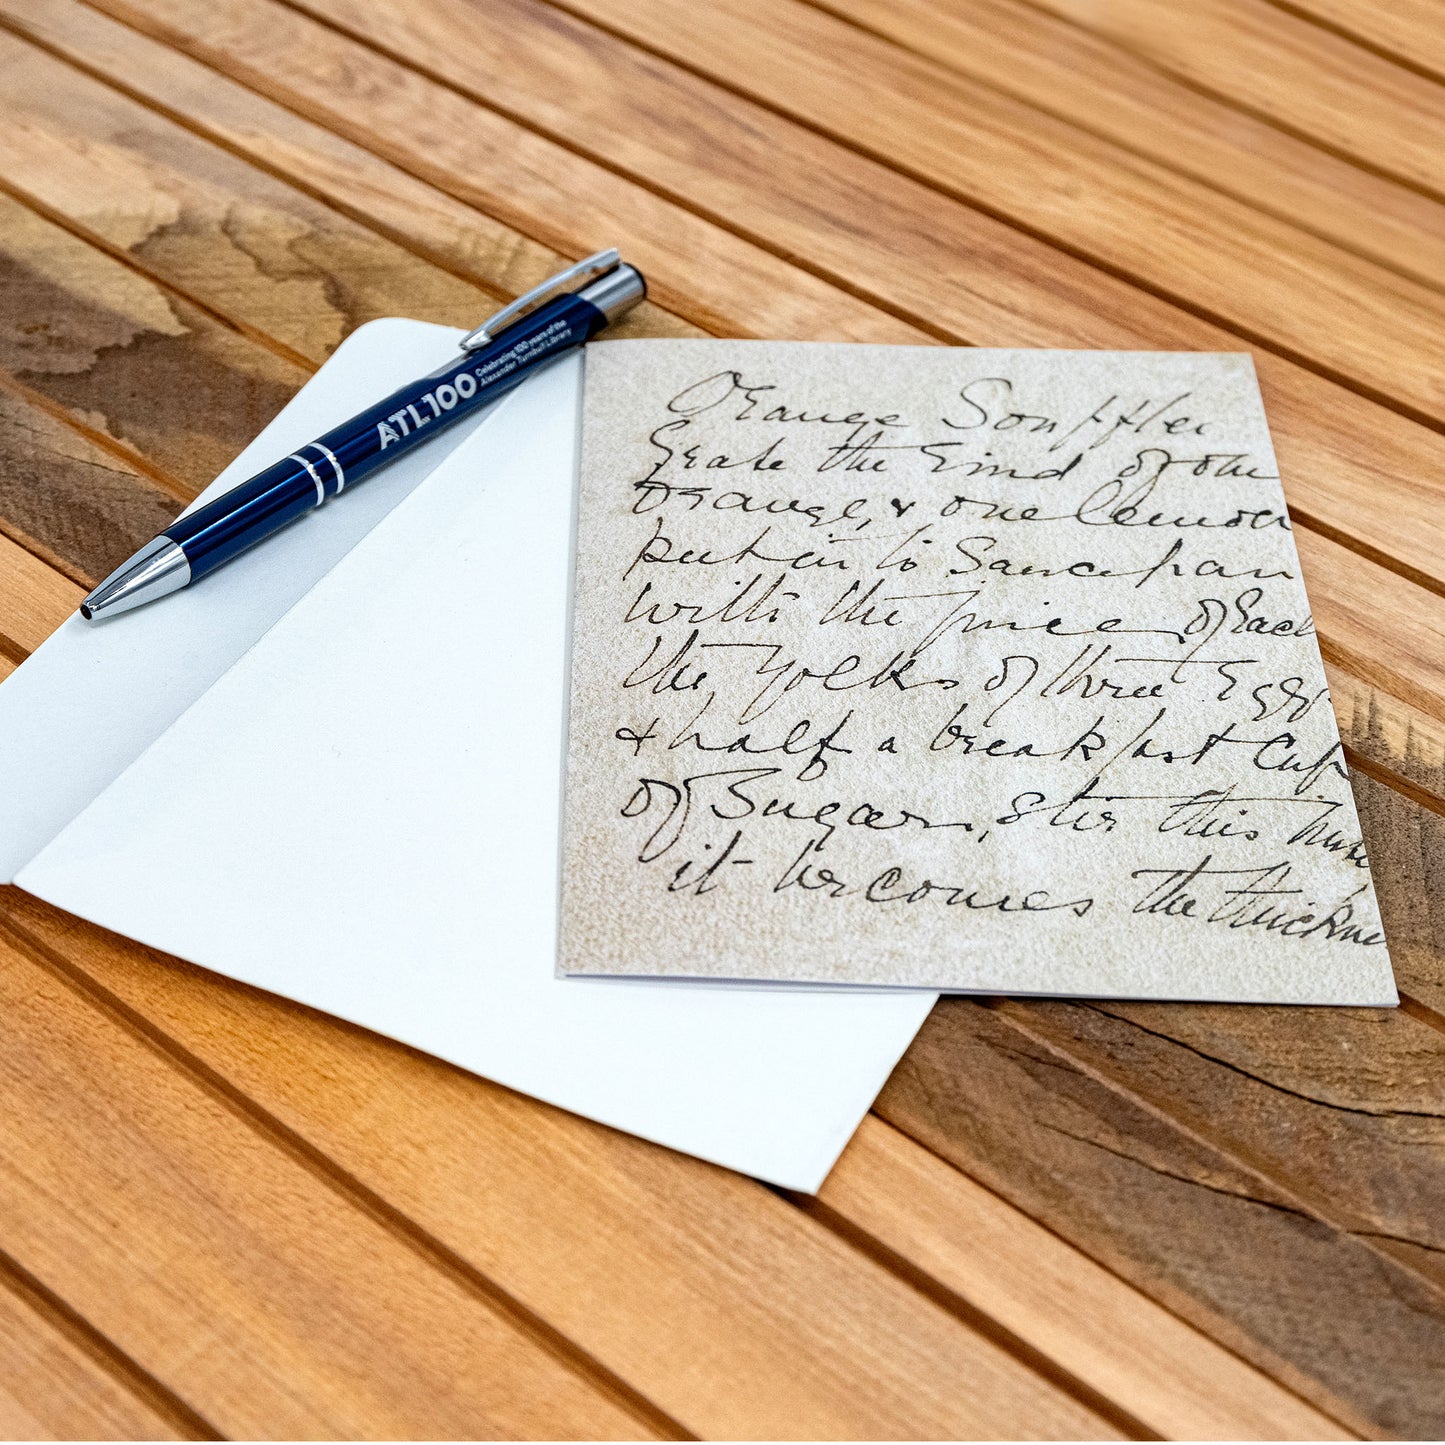 ATL100
Celebrating 100 years of the
Alexander Turnbull Library
Orange Souffler
Grate the rind of one
orange, & one lemon
put in to Saucepan
with the juice of Each
the yolks of three Eggs
& half a breakfast Cup
of Sugar, Stir this
it becomes the thickne